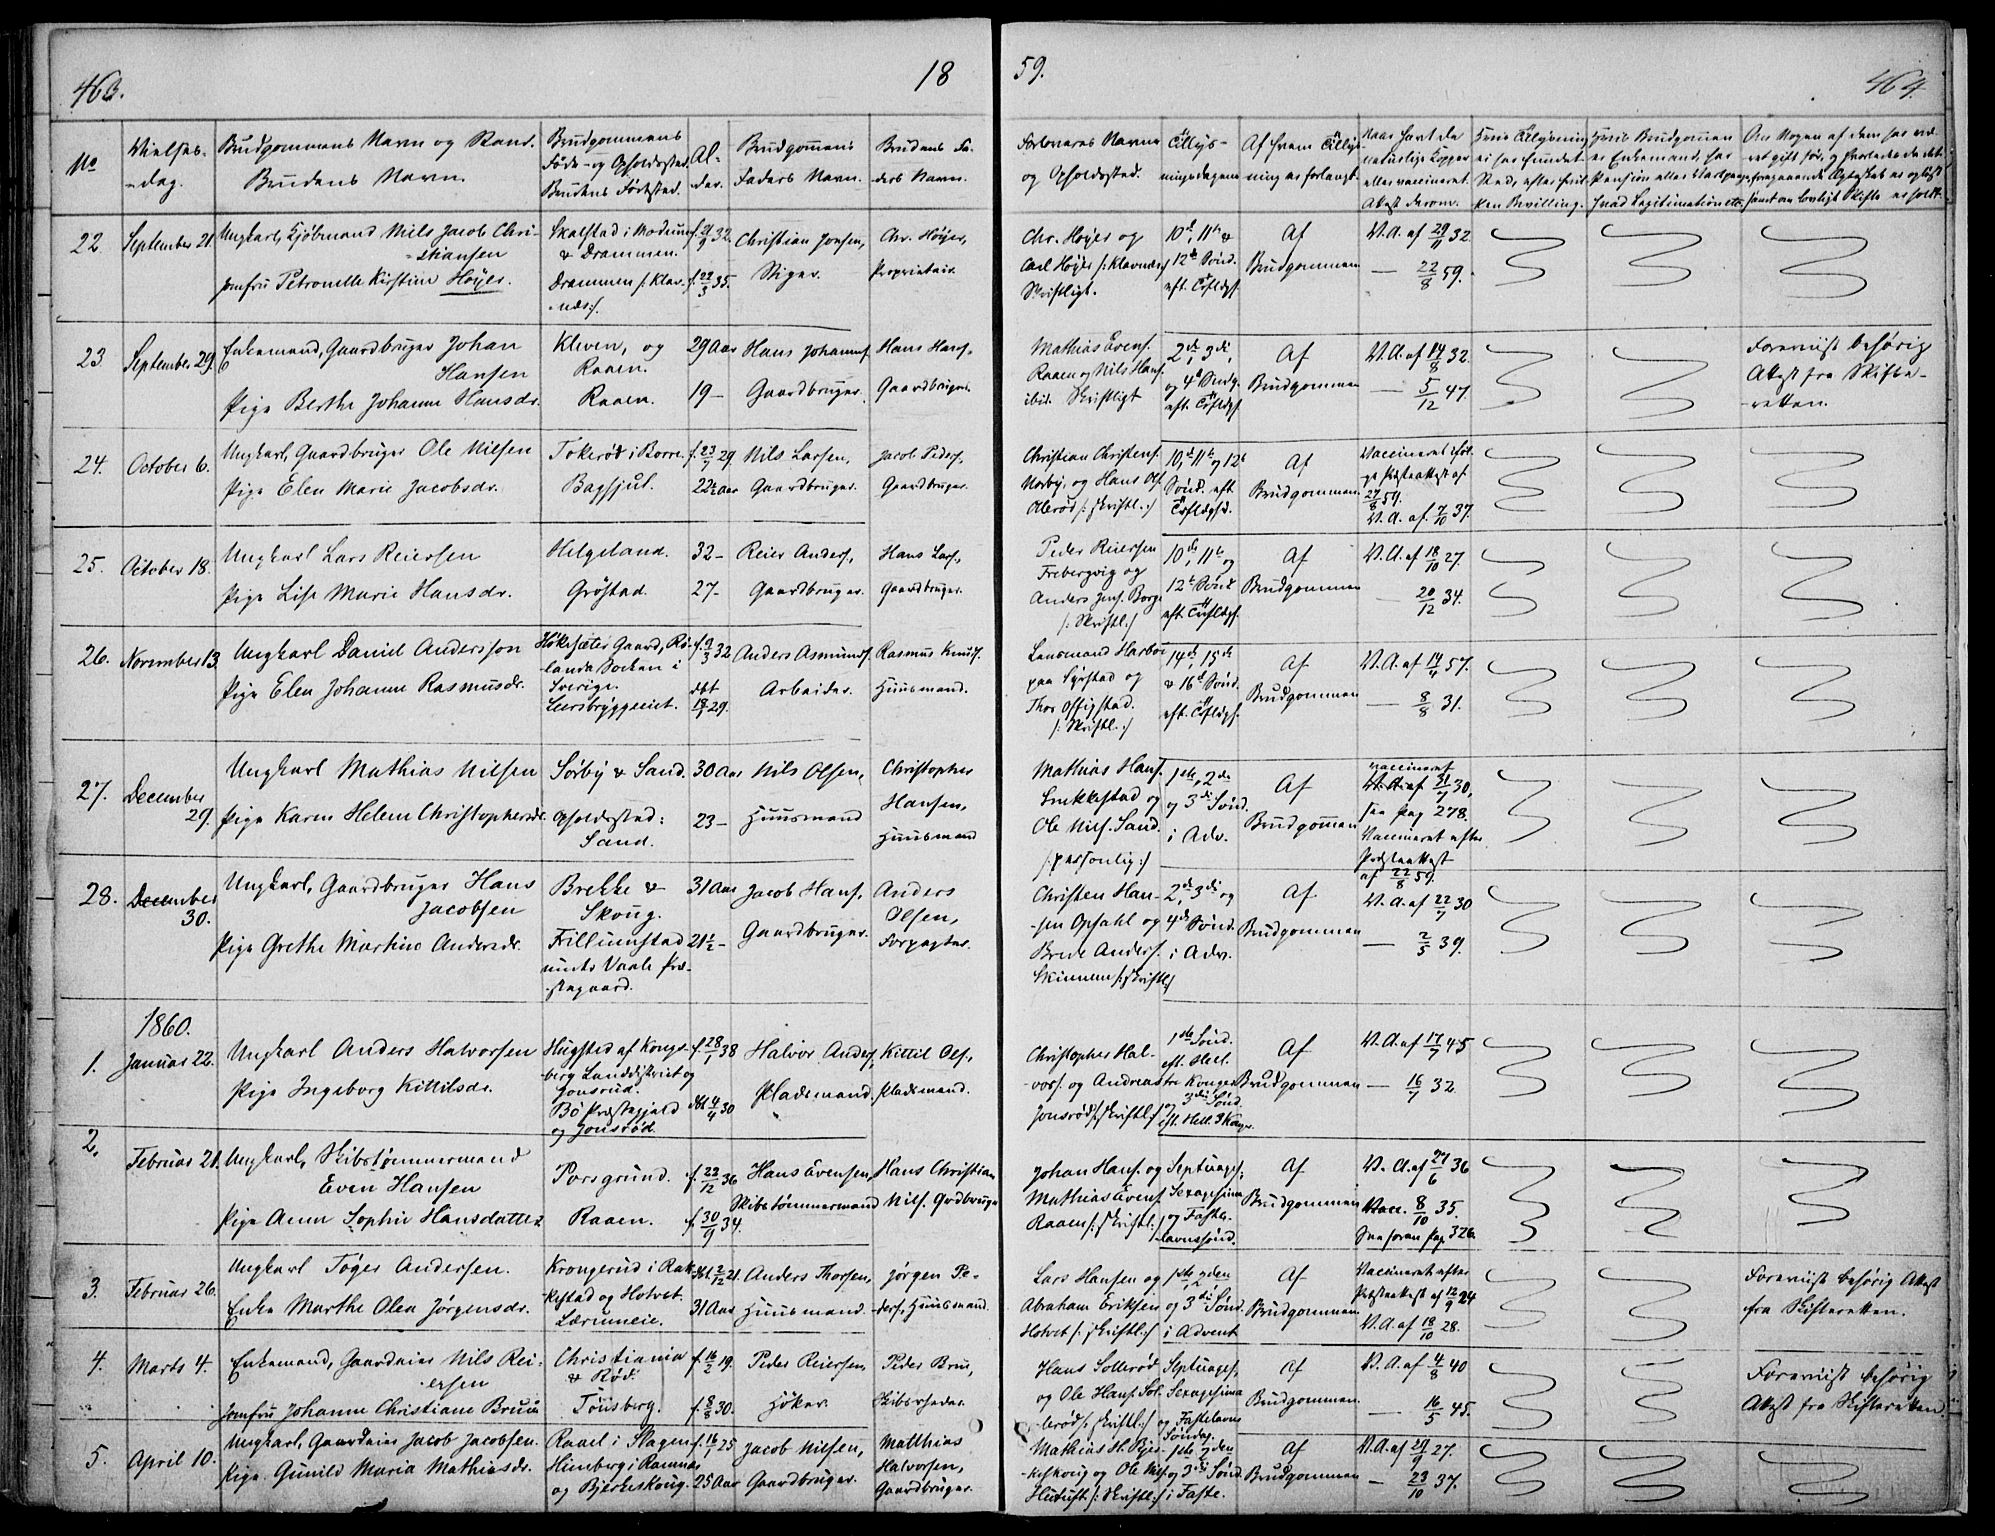 463.
18
59.
464.
No
Vielses-
-dag.
Brudgommens Navn og Stand.
Brudens Navn.
Brudgommens
Føde- og Opholdssted
Brudens Fødested.
Al-
der.
Brudgomens
Faders Navn.
Brudens Fa-
ders Navn.
Forlovernes Navne
og Opholdssted.
Tillys-
ningsdagene
Af hvem Tillys-
ning er forlangt.
22.
September 21.
Ungkarl, Kjøbmand Nils Jacob Chri-
-stiansen
Jomfru Petronelle Kirstine Høyer.
Skalstad i Modum
& Drammen.
Drammen /: Klav-
-næs:/.
f. 21/9 32.
f. 22/3 35.
Christian Jonsen,
Stiger.
Chr. Höyer,
Proprietair.
Chr. Høyer og
Carl Höyer /: Klavnæs:/
Skriftligt.
10de, 11te &
12te Sønd.
eft.
Af
Brudgommen
V.A. af 29/11 32.
— 22/8 59.
23
September 29.
Enkemand, Gaardbruger Johan
Hansen
Pige Berthe Johanne Hansdr.
Kleven, og
Raaen.
Raaen.
29 Aar
19 —
Hans Johannes.
Gaardbruger.
Hans Hans.
Gaardbruger.
Mathias Evens.
Raaen og Nils Hans.
ibid. Skriftligt
2de, 3die,
og 4de Søndg.
eft.
Af
Brudgommen
V.A. af 14/8 32.
— 5/12 47.
Foreviist behørig
Attest fra Skifte-
-retten.
24.
October 6.
Ungkarl, Gaardbruger Ole Nilsen
Pige Elen Marie Jacobsdr.
Tokerød i Borre.
Bagsjul.
f. 23/7 29
22½ Aar
Nils Larsen,
Gaardbruger.
Jacob Peders.
Gaardbruger.
Christian Christens.
Norby, og Hans Ol.
Olerød /: skriftl.:/
10de, 11te og 12te
Sønd. eft
Af
Brudgommen
27/8 59.
V.A. af. 7/10 37.
25.
October 18.
Ungkarl Lars Reiersen
Pige Lise Marie Hansdr.
Helgeland.
Gröstad.
32 —
27 —
Reier Anders.
Gaardbruger.
Hans Lars.
Gaardbruger.
Peder Reiersen
Frebergvig og
Anders Jens. Borge
/: Skriftl.:/
10de, 11te og
12te Sønd
eft.
Af
Brudgommen
V.A. af 18/10 27.
— 20/12 34.
26.
November 13.
Ungkarl Daniel Andersson
Pige Elen Johanne Rasmusdr.
Sverige.
f. 9/3 32
dbt
18/1 29.
Anders Asmunds.
Arbeider.
Rasmus Knuds.
Huusmand.
14de, 15de
& 16de Sønd.
eft.
/: Skriftl.:/
Af
Brudgommen
V.A. af 14/4 57.
— 8/8 31.
27.
December
29.
Ungkarl Mathias Nilsen
Pige Karen Helene Christophersdr.
Sörby & Sand.
Opholdssted:
Sand.
30 Aar
23 —
Nils Olsen,
Huusmand
Christopher
Hansen,
Huusmand
Mathias Hans.
Snekkestad og
Ole Nils. Sand.
/: personlig :/
1ste, 2de
og 3die Sönd.
i Adv.
Af
Brudgommen
vaccineret
V.A. af 31/7 30,
see pag 278.
Vaccineret efter
Præsteattest
af 22/8 59.
28.
December
30.
Ungkarl, Gaardbruger Hans
Jacobsen
Pige Grethe Martine Andersdr.
Brekke &
Skoug.
under Vaale Præ-
-stegaard.
31 Aar
21½ —
Jacob Hans.
Gaardbruger.
Anders
Olsen,
Forpagter.
Christen Han-
-sen Opsahl og
Brede Anders.
2de, 3die og
4de Sönd.
i Adv.
Af
Brudgommen
V.A. af 22/7 30
— 2/5 39.
1860.
1.
Januar 22.
Ungkarl Anders Halvorsen
Pige Ingeborg Kittilsdr.
Hugsted af Kongs-
-berg Landdistrict og
Jonsrud.
Bö Præstegjeld
og Jonsrød.
f. 28/1 38
dbt 4/4 30
Halvor Anders,
Pladsmand.
Kittil Ols,
Pladsmand.
Christopher Hal-
-vors. og Andreas
Jonsrød /: skriftl.:/
1ste Sönd.
eft. Hell.
tre Konger
og 3die Sönd.
eft. Hell. 3 Konger.
Af
Brudgommen
V.A. af 17/7 45
— 16/7 32
2.
Februar 21.
Ungkarl, Skibstömmermand
Even Hansen
Pige Anne Sophie Hansdatter
Porsgrund.
Raaen.
f. 22/12 36
f. 30/9 34.
Hans Evensen,
Skibstömmermand
Hans Christian
Nils. Grdbruger
Johan Hans. og
Mathias Evens.
Raaen /: skriftl.:/
Septuages.
Sexagesima
og Faste-
lavnssönd.
Af
Brudgommen
V. A. af 27/6 36
Vacc. 8/10 35.
See foran pag. 326.
3.
Februar 26.
Ungkarl Töger Andersen.
Enke Marthe Olea Jörgensdr.
Krongerud i Rak-
-kestad og Holvet.
dbt. 2/12 21.
31 Aar
Anders Thorsen,
Huusmand.
Jörgen Pe-
-ders. Huusmand.
Lars Hansen og
Abraham Eriksen
Holvet /: skriftl.:/
1ste, 2den
og 3die Sönd.
i Advent
Af
Brudgommen
Vaccineret efter
Præsteattest af 12/9 24
V.A. af 18/10 28.
Foreviist behörig Attest
fra Skifteretten.
4.
Marts 4.
Enkemand, Gaardeier Nils Rei-
-ersen
Jomfru Johanne Christiane Bruun
Christiania
& Röd.
Tönsberg.
f. 16/2 19.
f. 8/8 30.
Peder Reiersen,
Höker.
Peder Bruu,
Skibsrheder.
Hans Solleröd
og Ole Hans. Sol-
-leröd /: skriftl.:/
Septuages,
Sexagesima
og Fastelavns
Söndag.
Af
Brudgommen
V.A. af 4/8 40
— 16/5 45.
Foreviist behörig
Attest fra Skifteretten.
5.
April 10.
Ungkarl, Gaardeier Jacob Jacobsen.
Pige Gunild Maria Mathiasdr.
Raael i Slagen
Himberg i Ramnæs
og Bjerkeskoug.
f. 16/1 25
25 Aar
Jacob Nilsen,
Gaardbruger.
Matthias
Halvorsen,
Gaardbruger.
Mathias H. Bjer-
-keskoug og Ole Nils.
1ste, 2den
og 3die Sönd.
i Faste.
Af
Brudgommen
V.A. af 29/9 27.
— 23/10 37.